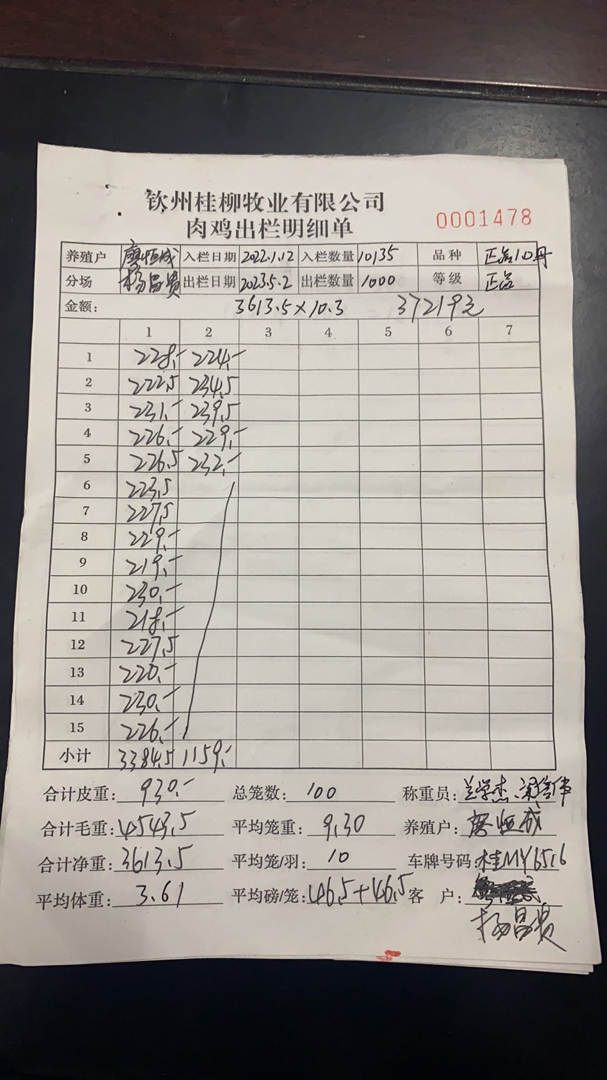 钦州桂柳牧业有限公司
肉鸡出栏明细单
0001478
养殖户 廖恒成 入栏日期 2022.1.12 入栏数量 10135 品种
分场 杨昌贵 出栏日期 2023.5.2 出栏数量 1000 等级 正品
金额: 3613.5×10.3 37219元
1 2 3 4 5 6 7
1 228.- 224.-
2 222.5 234.5
3 231.- 239.5
4 226.- 229.-
5 226.5 232.-
6 223.5
7 227.5
8 229.-
9 219.-
10 230.-
11 218.-
12 227.5
13 220.-
14 230.-
15 226.-
小计 3384.5 1159.-
合计皮重: 930.- 总笼数: 100 称重员:
合计毛重: 4543.5 平均笼重: 9.30 养殖户:
合计净重: 3613.5 平均笼/羽: 10 车牌号码: 桂MY6516
平均体重: 3.61 平均磅/笼: 46.5+46.5 客 户:
杨昌贵